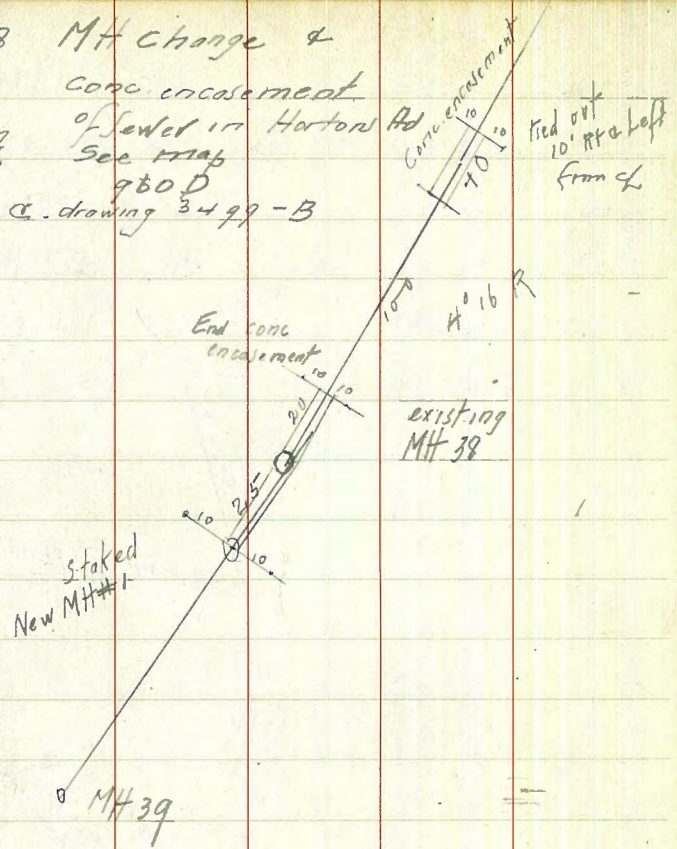 MH Change &
Conc. encasement
of sewer in Hortons Ad
See map
960 D
&. drawing 3499-B
Conc. encasement
10
10
40
Tied out
10' Rt & Left
from CL
100
4° 16 R
End conc
encasement
10
10
20
existing
MH 38
25
10
10
staked
New MH#1
MH 39